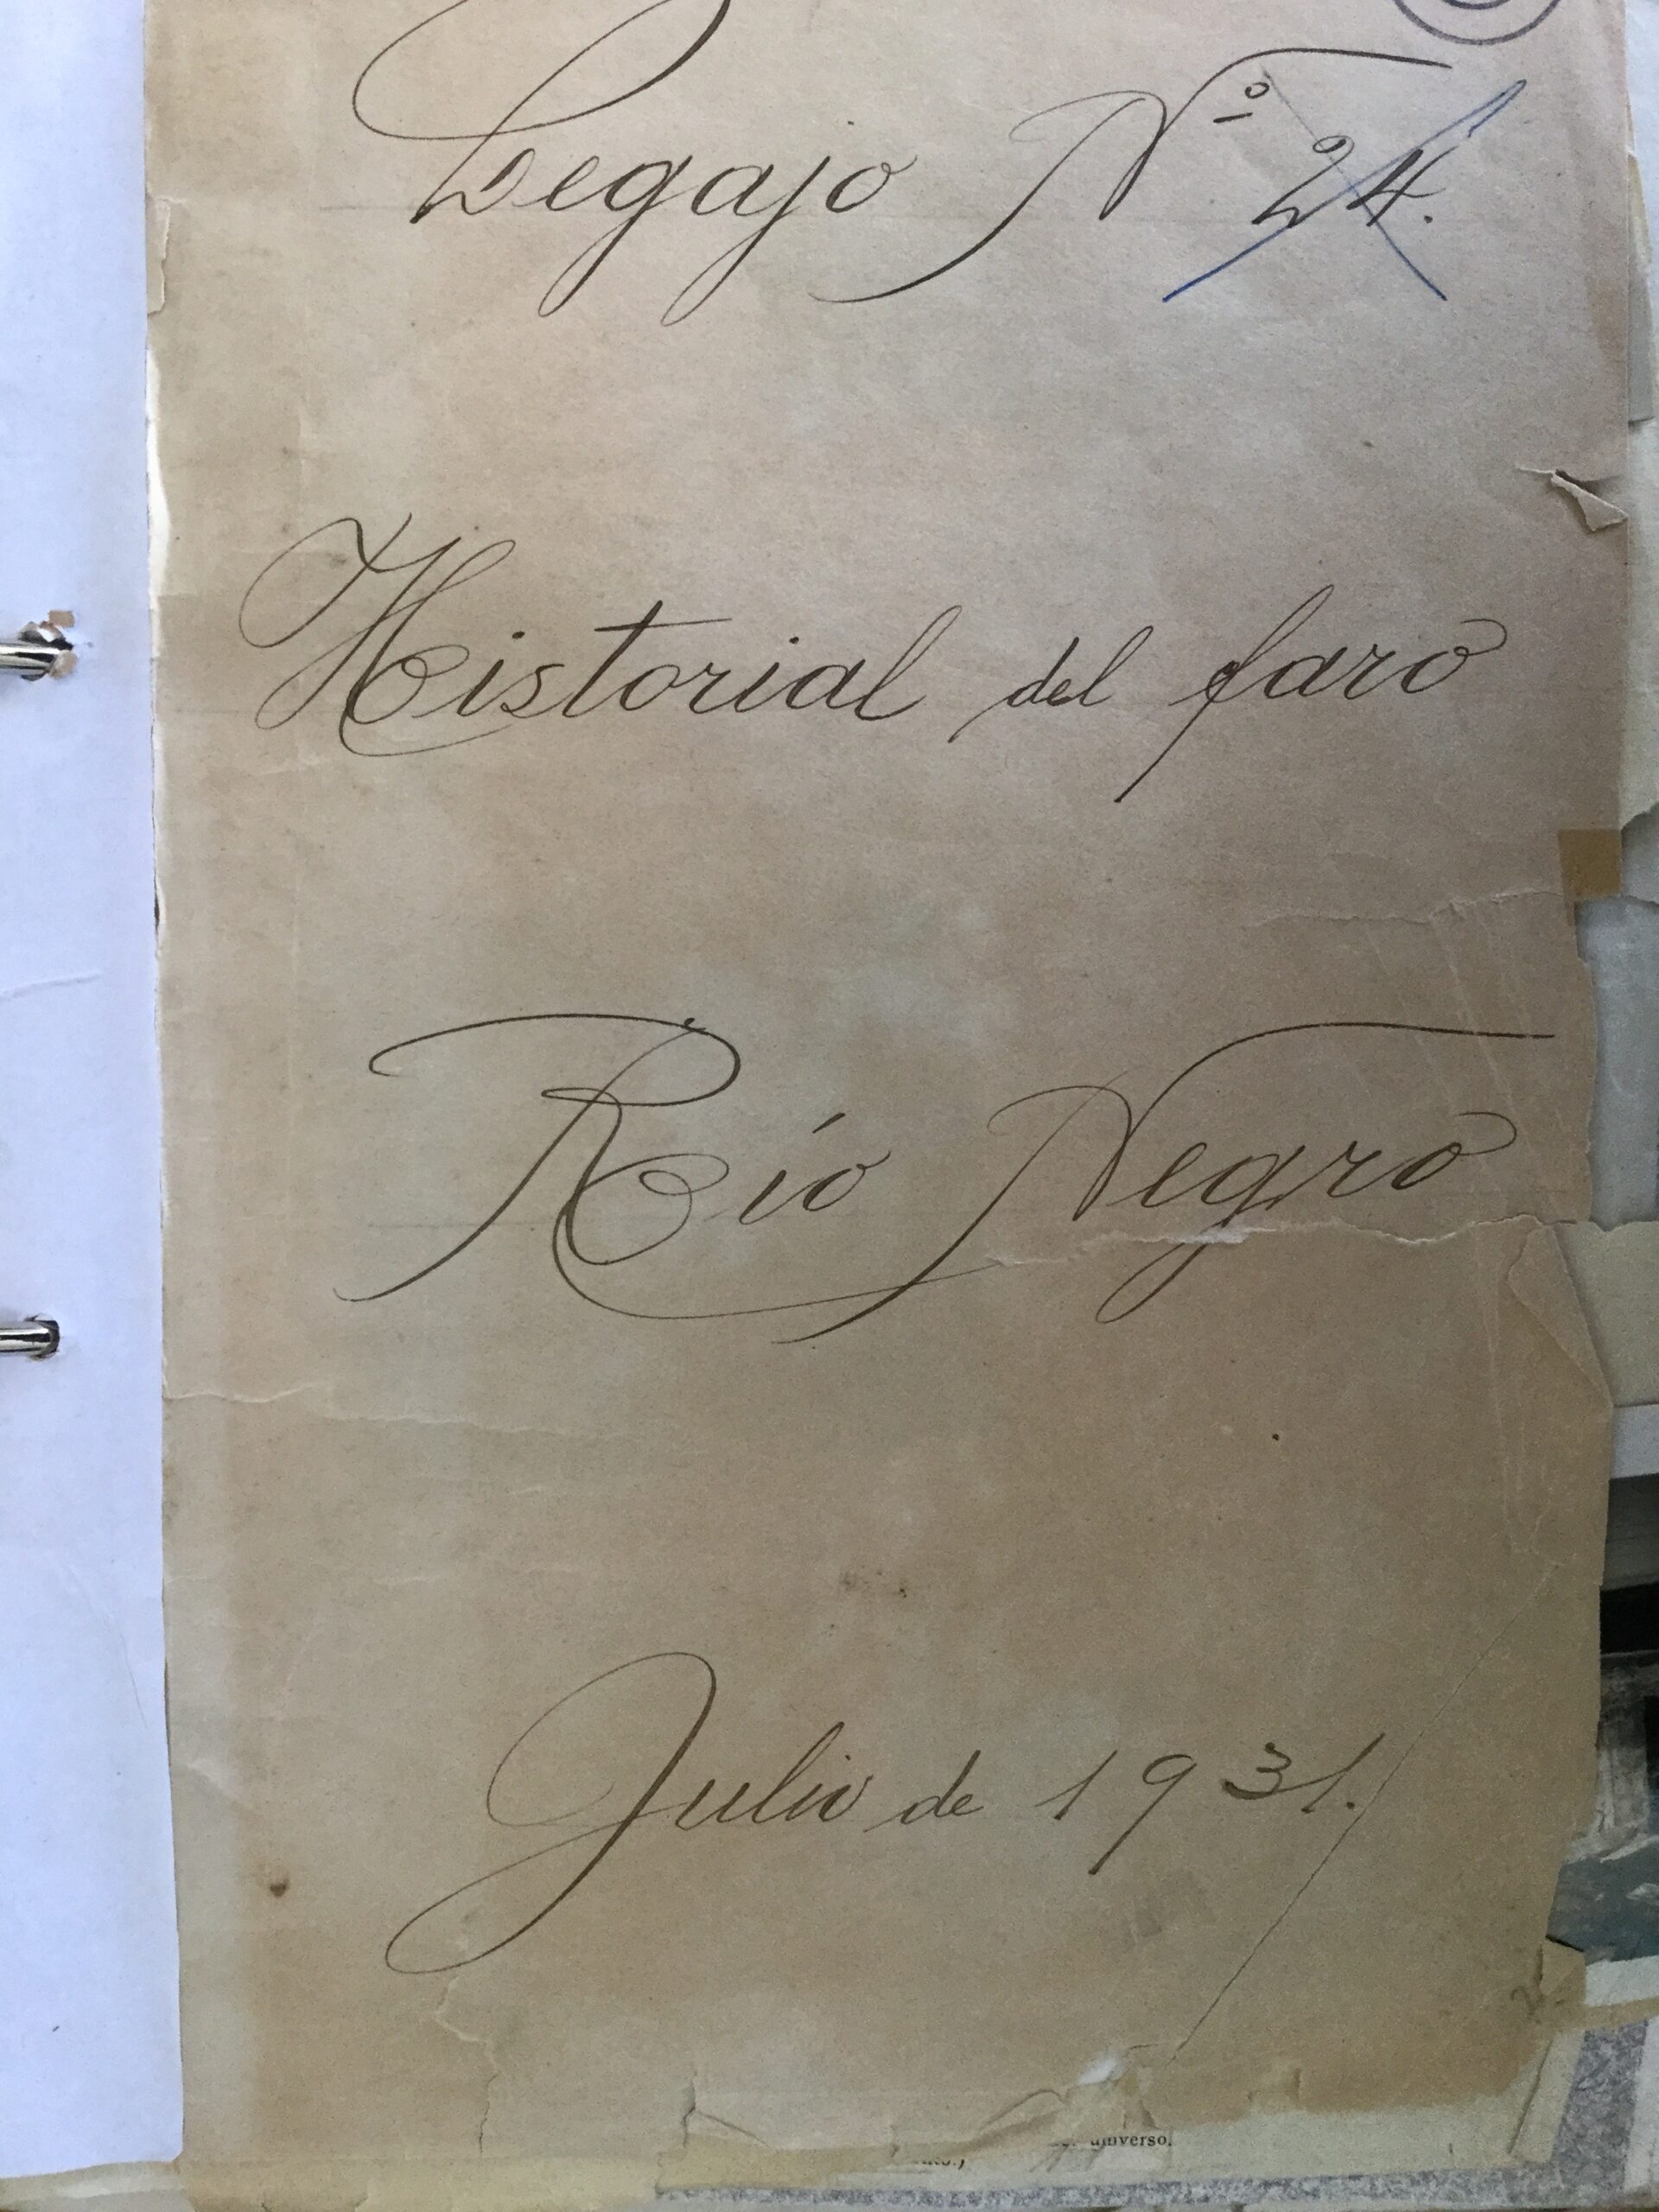 Legajo Nº 24.
Historial del faro
Río Negro
Julio de 1931.
universo.